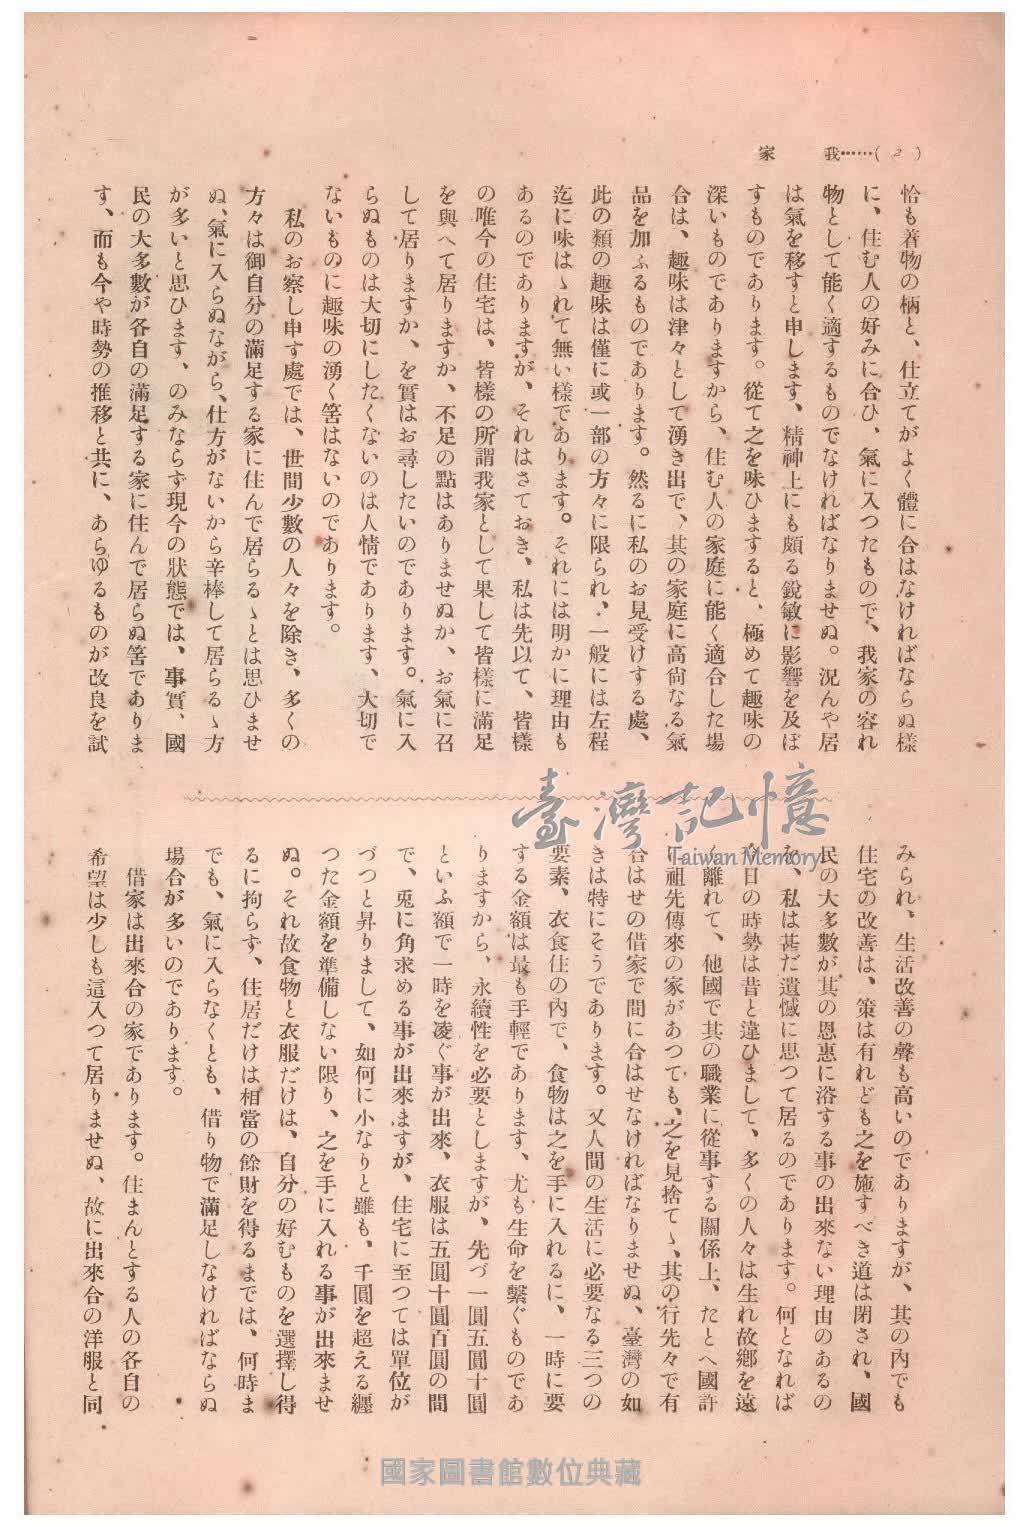 (2)……我家
恰も着物の柄と、仕立てがよく體に合はなければならぬ樣
に、住む人の好みに合ひ、氣に入つたもので、我家の容れ
物として能く適するものでなければなりませぬ。況んや居
は氣を移すと申します、精神上にも頗る銳敏に影響を及ぼ
すものであります。從て之を味ひますると、極めて趣味の
深いものでありますから、住む人の家庭に能く適合した場
合は、趣味は津々として湧き出で、其の家庭に高尙なる氣
品を加ふるものであります。然るに私のお見受けする處、
此の類の趣味は僅に或一部の方々に限られ、一般には左程
迄に味はゝれて無い樣であります。それには明かに理由も
あるのでありますが、それはさておき、私は先以て、皆樣
の唯今の住宅は、皆樣の所謂我家として果して皆樣に滿足
を與へて居りますか、不足の點はありませぬか、お氣に召
して居りますか、を實はお尋したいのであります。氣に入
らぬものは大切にしたくないのは人情であります、大切で
ないものに趣味の湧く筈はないのであります。
私のお察し申す處では、世間少數の人々を除き、多くの
方々は御自分の滿足する家に住んで居らるゝとは思ひませ
ぬ、氣に入らぬながら、仕方がないから辛棒して居らるゝ方
が多いと思ひます、のみならず現今の狀態では、事實、國
民の大多數が各自の滿足する家に住んで居らぬ筈でありま
す、而も今や時勢の推移と共に、あらゆるものが改良を試
みられ、生活改善の聲も高いのでありますが、其の內でも
住宅の改善は、策は有れども之を施すべき道は閉され、國
民の大多數が其の恩惠に浴する事の出來ない理由のあるの
を、私は甚だ遺憾に思つて居るのであります。何となれば
今日の時勢は昔と違ひまして、多くの人々は生れ故鄕を遠
く離れて、他國で其の職業に從事する關係上、たとへ國許
に祖先傳來の家があつても、之を見捨てゝ、其の行先々で有
合はせの借家で間に合はせなければなりませぬ、臺灣の如
きは特にそうであります。又人間の生活に必要なる三つの
要素、衣食住の內で、食物は之を手に入れるに、一時に要
する金額は最も手輕であります、尤も生命を繫ぐものであ
りますから、永續性を必要としますが、先づ一圓五圓十圓
といふ額で一時を凌ぐ事が出來、衣服は五圓十圓百圓の間
で、兎に角求める事が出來ますが、住宅に至つては單位が
づつと昇りまして、如何に小なりと雖も、千圓を超える纒
つた金額を準備しない限り、之を手に入れる事が出來ませ
ぬ。それ故食物と衣服だけは、自分の好むものを選擇し得
るに拘らず、住居だけは相當の餘財を得るまでは、何時ま
でも、氣に入らなくとも、借り物で滿足しなければならぬ
場合が多いのであります。
借家は出來合の家であります。住まんとする人の各自の
希望は少しも這入つて居りませぬ、故に出來合の洋服と同
臺灣記憶
Taiwan Memory
國家圖書館數位典藏